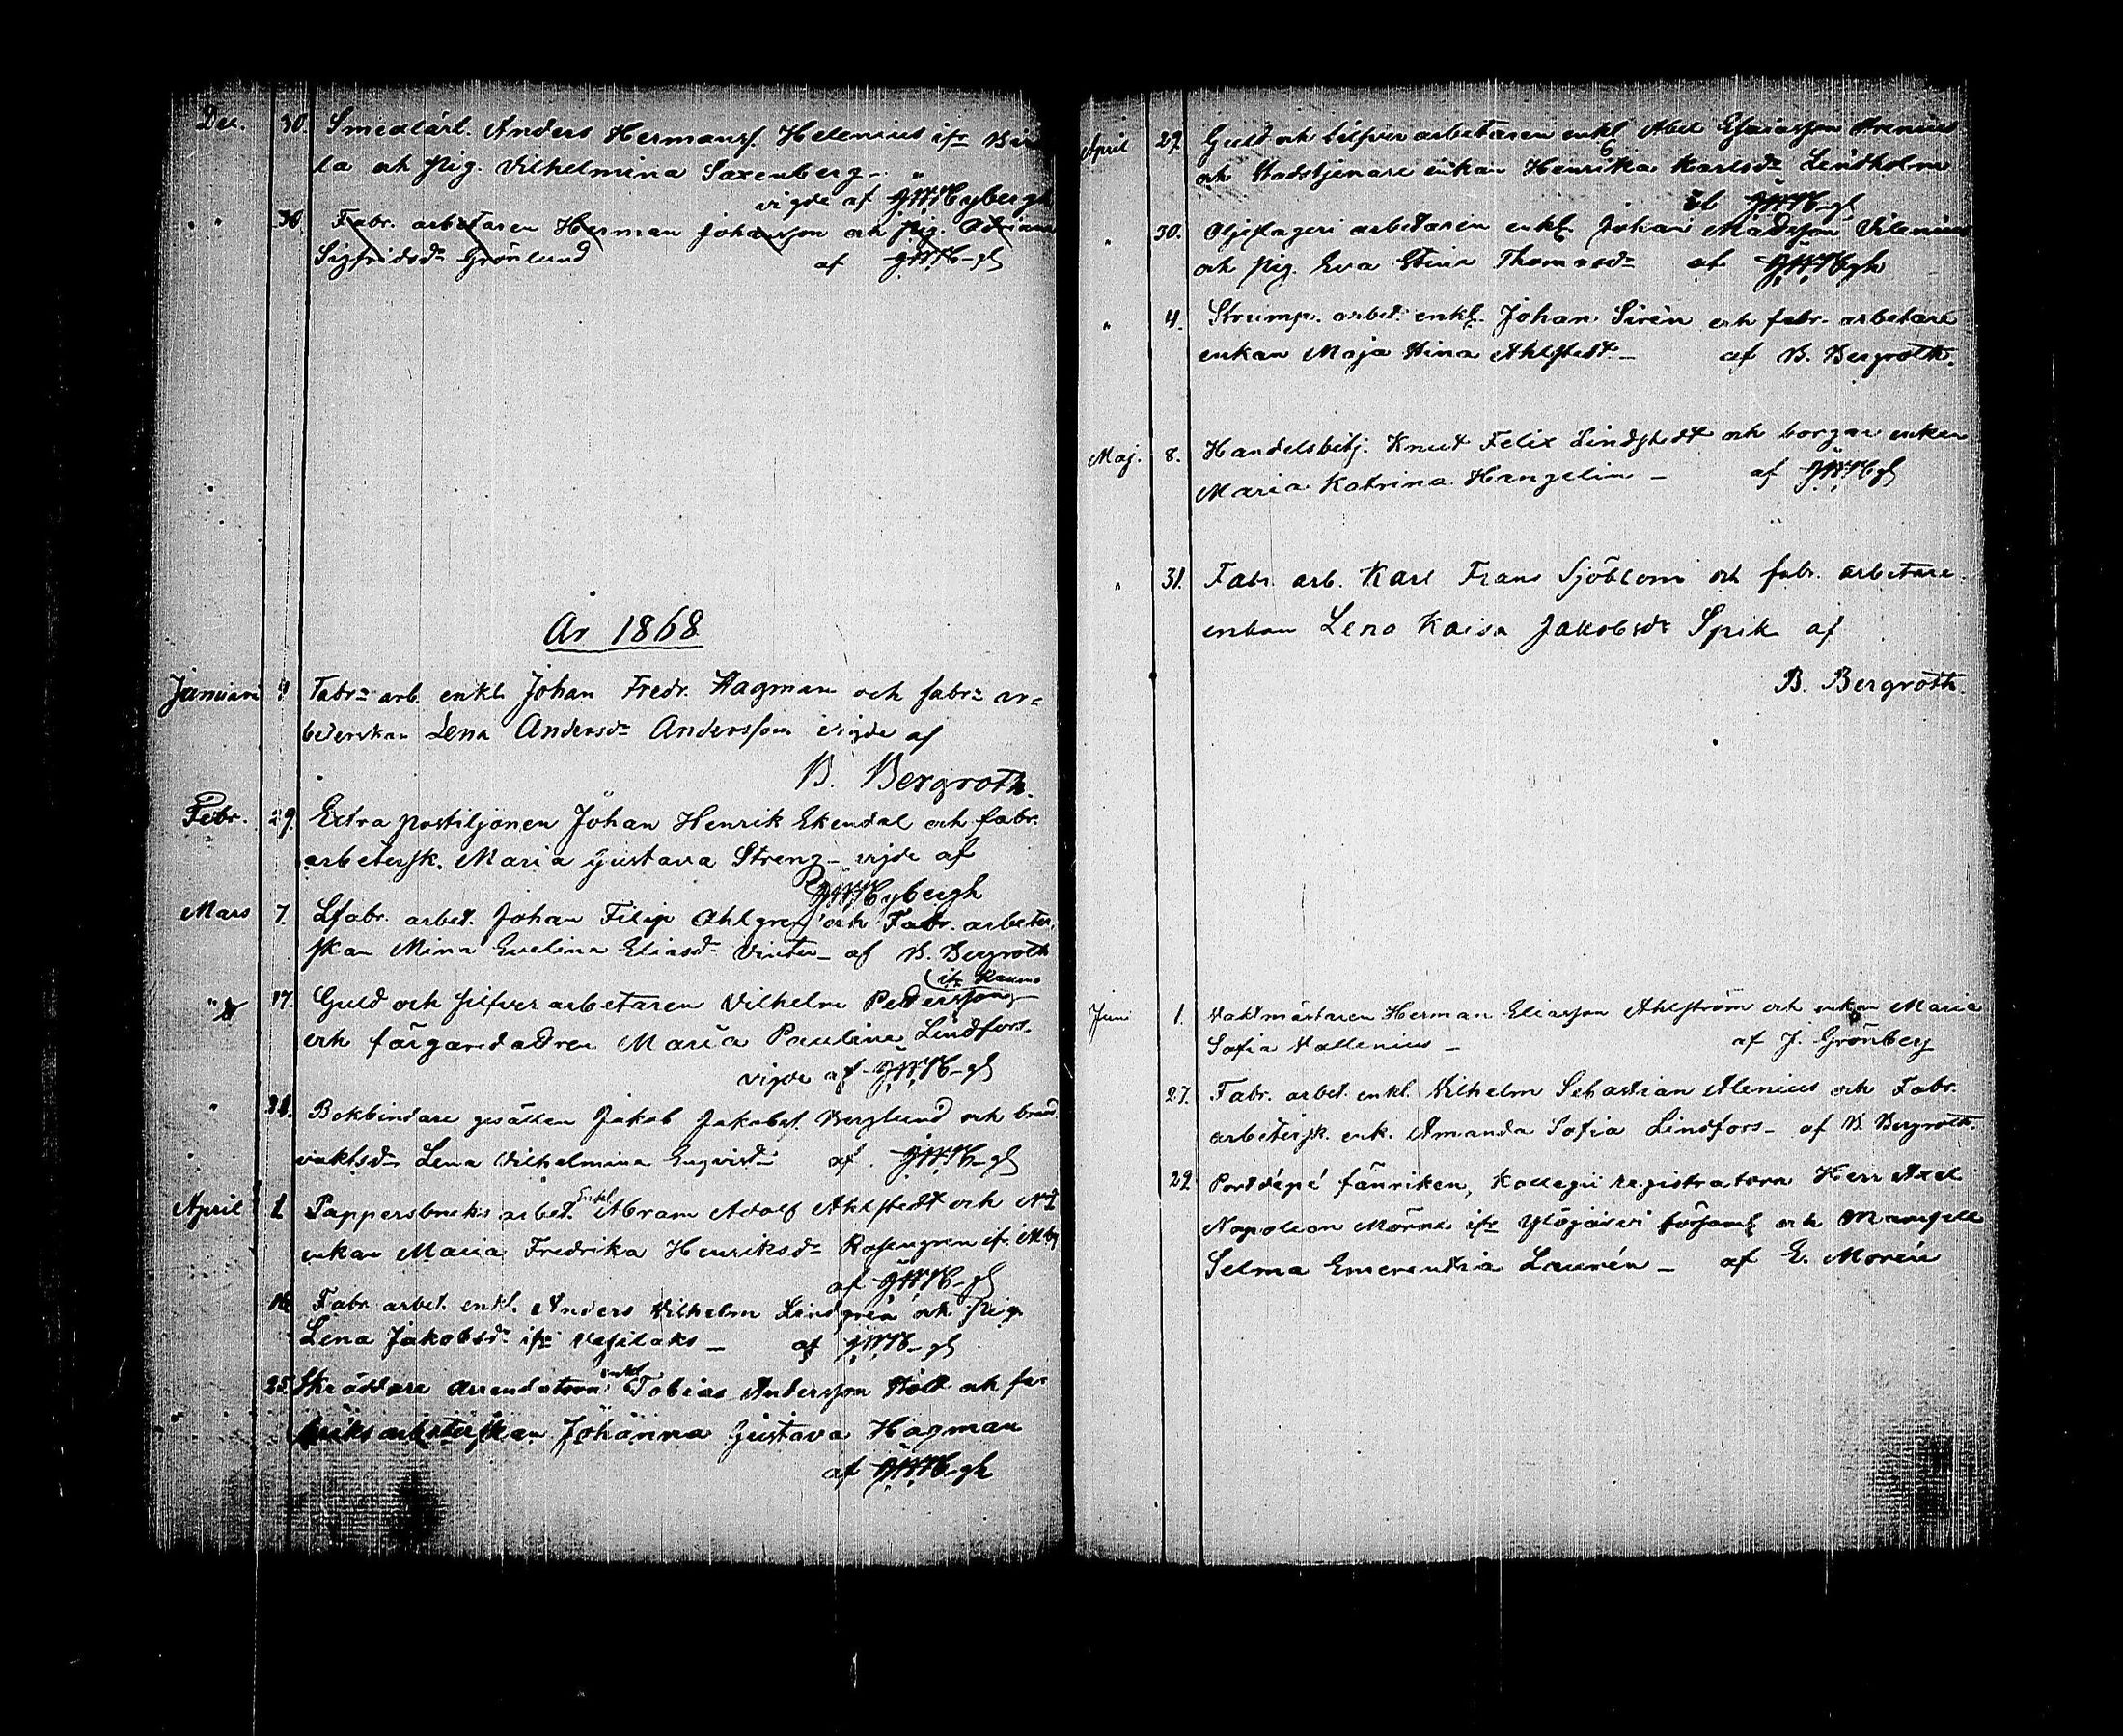 Dec. 30. Smedlärl. Anders Hermansf. Helenius ifr Bir
la och pig. Vilhelmina Saxenberg -
vigde af G.W. Hybergh
" 30 Fabr. arbetaren Herman Johansson och pig. Adriana
Sigfridsdr Grönlund af G.W.H-gh
År 1868
Januari 4 Fabrs arb. enkl. Johan Fredr. Hagman och fabrs ar-
beterskan Lena Andersdr Andersson vigde af
B. Bergroth.
Febr. 29. Extra postiljonen Johan Henrik Ekendal och fabr.
arbetersk. Maria Gustava Streng - vigde af
G.W. Hybergh
Mars 7. Lfabr. arbet. Johan Filip Ahlgren och Fabr. arbeter
skan Mina Evelina Eliasdr Vinter - af B. Bergroth
(ifr Raumo
" 17. Guld och silfver arbetaren Vilhelm Pettersson
och färgaredottren Maria Paulina Lindfors -
vigde af G.W.H-gh
" 31. Bokbindare gesällen Jakob Jakobsf. Berglund och brand
vaktsdr Lena Vilhelmina Enqvist af G.W.H-gh
April 1 Pappersbruks arbet. enkl Abram Adolf Ahlstedt och
enkan Maria Fredrika Henriksdr Rosengren if.
af G.W.H-gh
16. Fabr. arbet. enkl. Anders Vilhelm Lindgren och pig.
Lena Jakobsdr ifr Vesilaks - af G.W.H-gh
25. Skräddare arrendatorn enkl Tobias Andersson Holt och fa-
briks arbeterskan Johanna Gustava Hagman
af G.W.H-gh
April 29. Guld och silfver arbetaren enkl Abel Esaiasson Arenius
och stadstjenare enkan Henrika Karlsdr Lindholm
af G.W.H-gh
" 30. Oljeslageri arbetaren enkl. Johan Mattsson Vilenius
och pig. Eva Stina Thomasdr af G.W.H-gh
" 4. Strump. arbet. enkl. Johan Sirén och fabr. arbetare
enkan Maja Stina Ahlstedt - af B. Bergroth.
Maj. 8. Handelsbetj. Knut Felix Lindstedt och borgar enkan
Maria Katrina Hangelin - af G.W.H-gh
" 31. Fabr. arb. Karl Frans Sjöblom och fabr. arbetare
enkan Lena Kaisa Jakobsdr Spik af
B. Bergroth.
Juni 1. Vaktmästaren Herman Eliasson Ahlström och enkan Maria
Sofia Vallenius - af J. Grönberg
27. Fabr. arbet. enkl. Vilhelm Sebastian Alenius och Fabr.
arbetersk. enk. Amanda Sofia Lindfors - af B. Bergroth.
29 Portdépé fänriken, Kollegii registratorn Herr Axel
Napoleon Mörne ifr Ylöjärvi församl och Mamsell
Selma Emerentia Laurén - af E. Morén